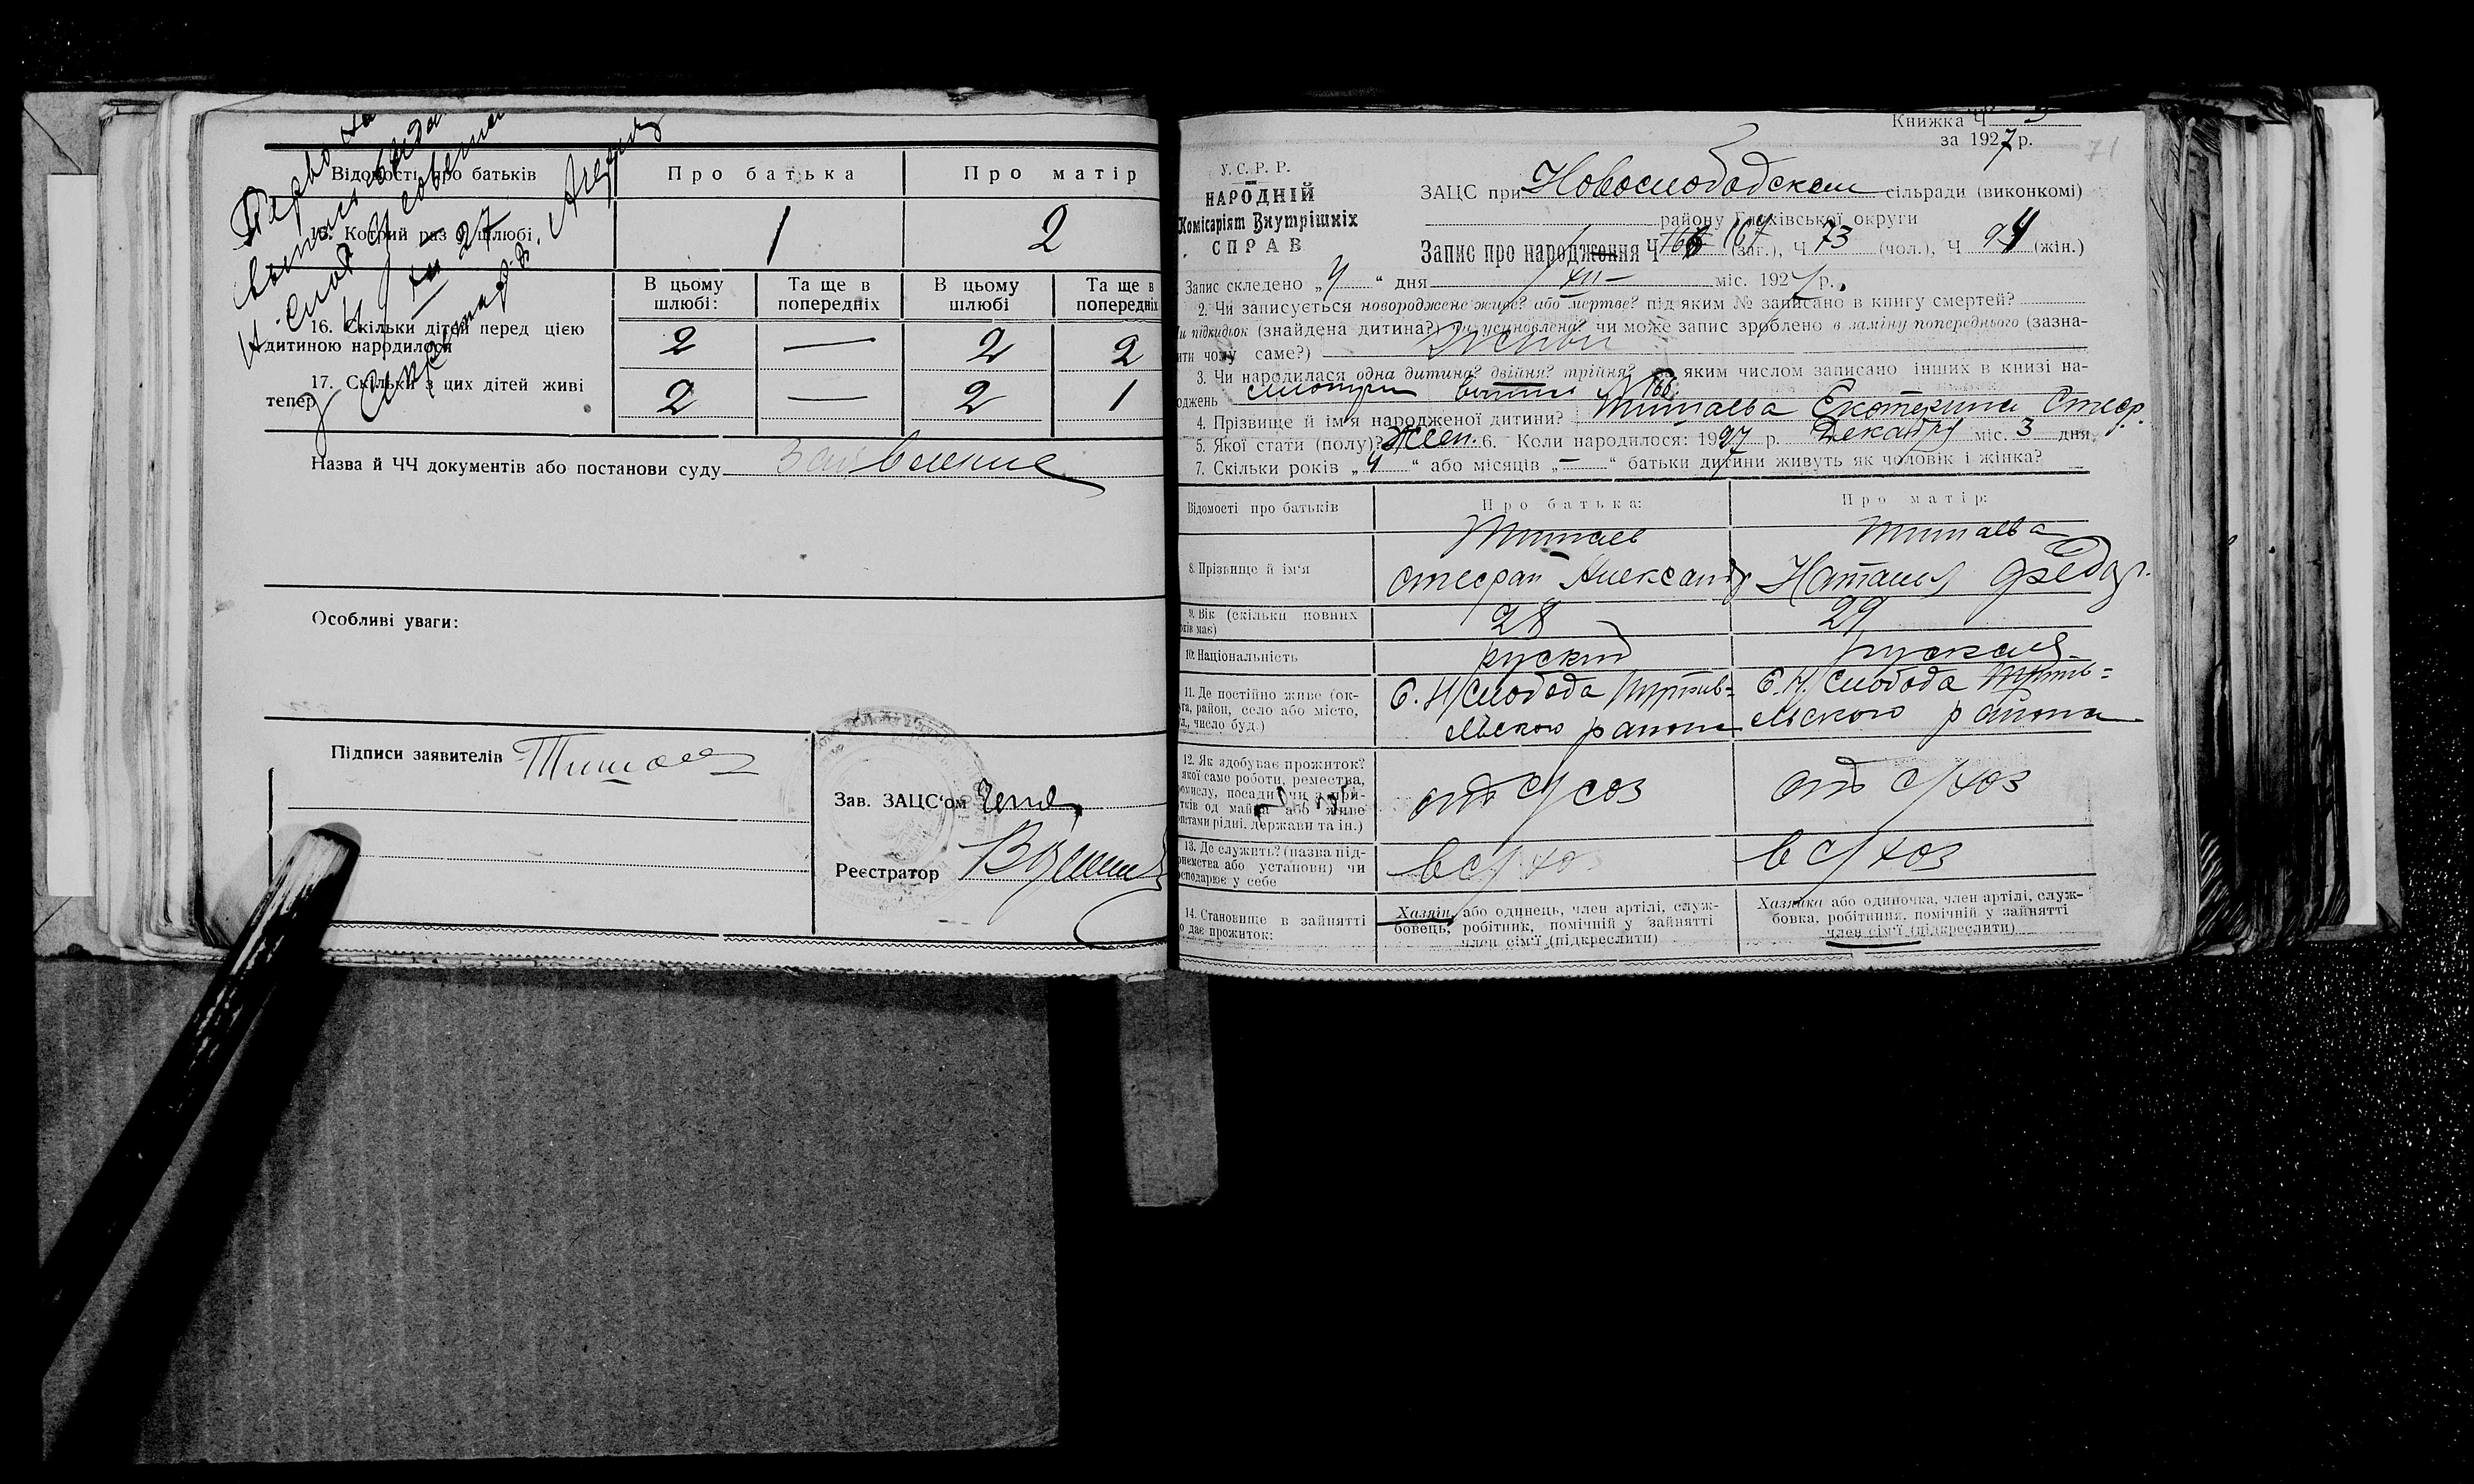 Відомості про батьків
Про батька
Про матір
15. Котрий раз у шлюбі
1
2
В цьому шлюбі:
Та ще в попередніх
В цьому шлюбі
Та ще в попередніх
16. Скільки дітей перед цією
дитиною народилося
2 — 2 2
17. Скільки з цих дітей живі
тепер
2 — 2 1
Назва й ЧЧ документів або постанови суду Заявление
Особливі уваги:
Підписи заявителів
Зав. ЗАЦС'ом
Реєстратор
Книжка Ч
за 1927 р.
71
У. С. Р. Р.
НАРОДНІЙ
Комісаріят Внутрішніх
СПРАВ
ЗАЦС при Новослободском сільради (виконкомі)
району Глухівської округи
Запис про народження Ч 166 167 (заг.), Ч 73 (чол.), Ч 94 (жін.)
Запис складено „4“ дня XII міс. 1927 р.
2. Чи записується новороджене живе? або мертве? під яким № записано в книгу смертей?
підкидьок (знайдена дитина?) чи усиновлена? чи може запис зроблено в заміну попереднього (зазна-
ити чому саме?)
3. Чи народилася одна дитина? двійня? трійня? за яким числом записано інших в книзі на-
оджень смотри 166
4. Прізвище й ім'я народженої дитини? Титаева Екатерина Стеф.
5. Якої стати (полу)? Жен. 6. Коли народилося: 1927 р. Декабря міс. 3 дня
7. Скільки років „4“ або місяців „—“ батьки дитини живуть як чоловік і жінка?
Відомості про батьків
Про батька:
Про матір:
8. Прізвище й ім'я
Титаев
Стефан Александр
Титаева
Наталия Федор.
9. Вік (скільки повних
років має)
28
29
10. Національність
руский
руская
11. Де постійно живе (ок-
га, район, село або місто,
л., число буд.)
С. Н/Слобода Путив=
льского района
С. Н/Слобода Путив=
льского района
12. Як здобуває прожиток?
якої саме роботи, ремества,
от с/хоз
от с/хоз
13. Де служить? (назва під-
приємства або установи) чи
господарює у себе
в с/хоз
в с/хоз
14. Становище в зайнятті
що дає прожиток:
Хазяїн, або одинець, член артілі, служ-
бовець, робітник, помічній у зайнятті
член сім'ї (підкреслити)
Хазяйка або одиночка, член артілі, служ-
бовка, робітниця, помічній у зайнятті
член сім'ї (підкреслити)